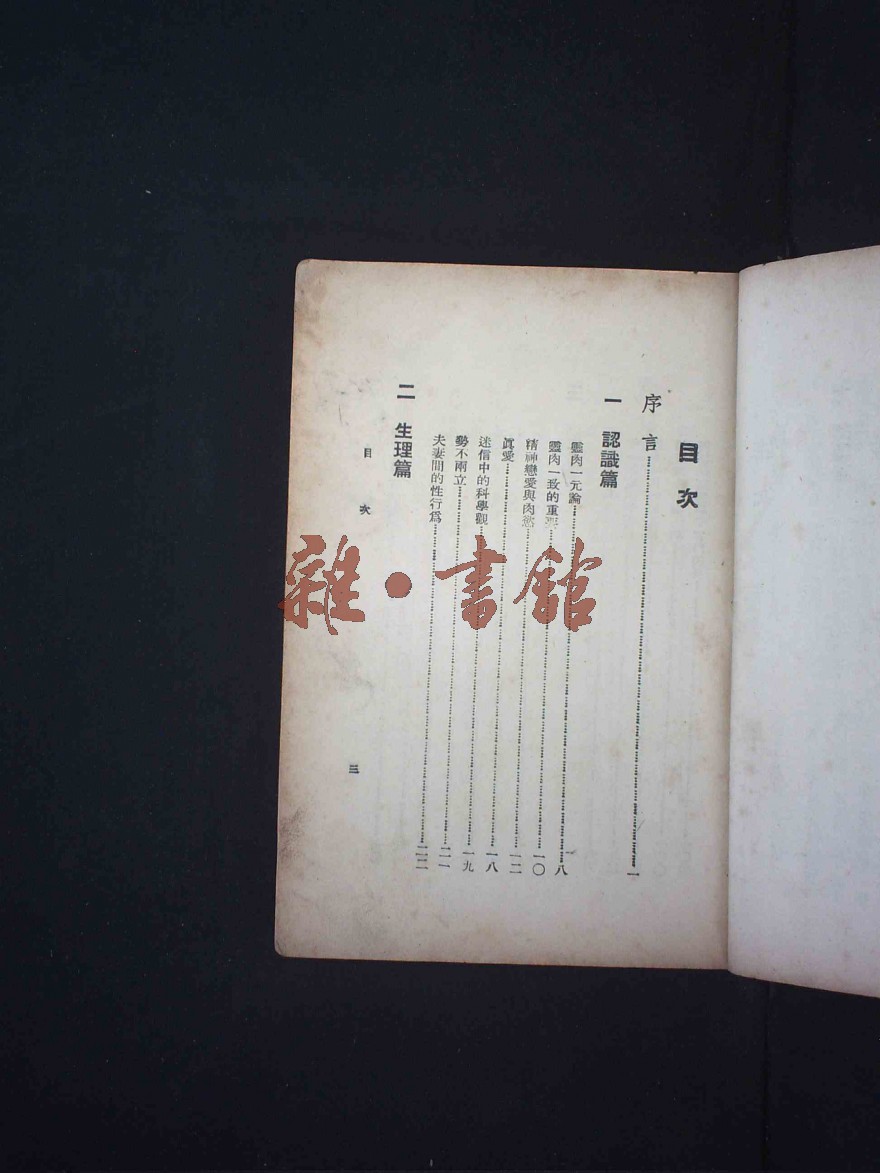 目次
序言……一
一 認識篇
靈肉一元論……八
靈肉一致的重要……一〇
精神戀愛與肉慾……一二
眞愛……一八
迷信中的科學觀……一九
勢不兩立……二一
夫妻間的性行爲……二二
二 生理篇
目次
三
雜·書館